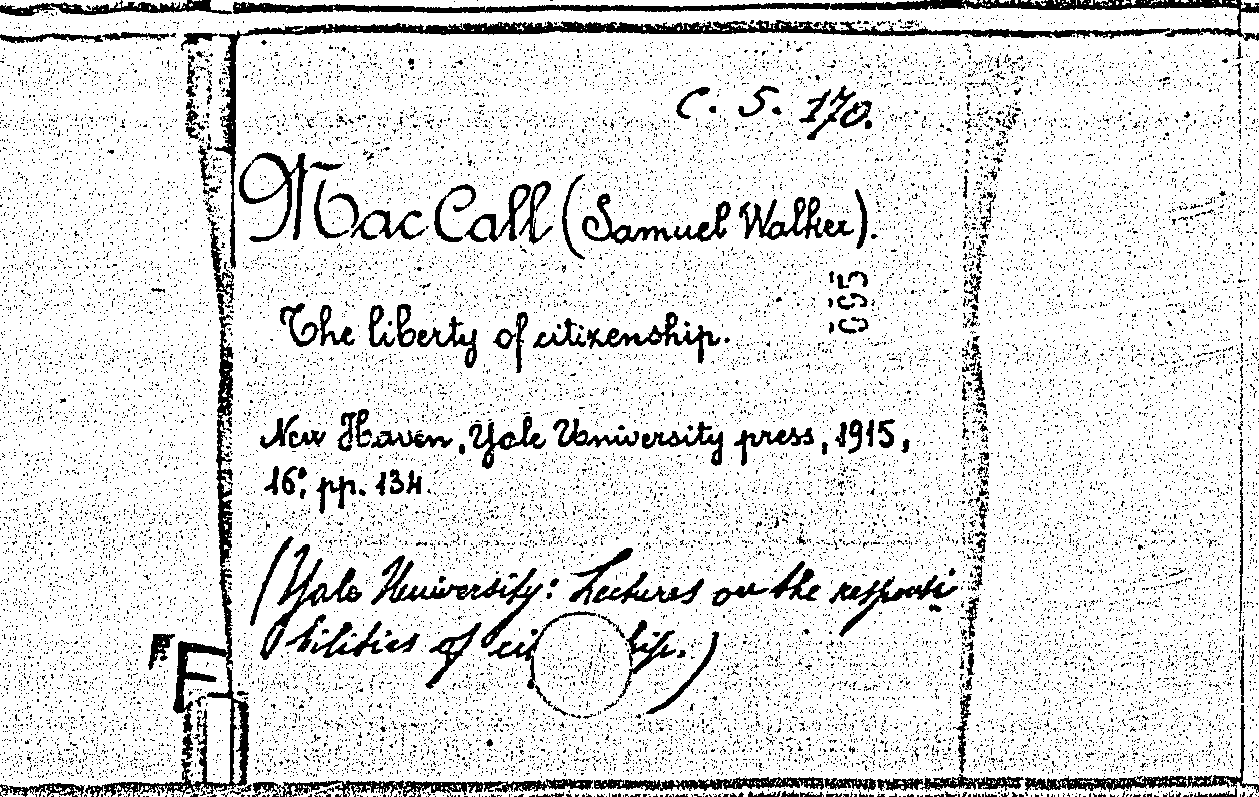 C. S. 170.
MacCall (Samuel Walker).
The liberty of citizenship.
New Haven, Yale University press, 1915,
16°, pp. 134.
(Yale University: Lectures on the responsi
bilities of cit hip.)